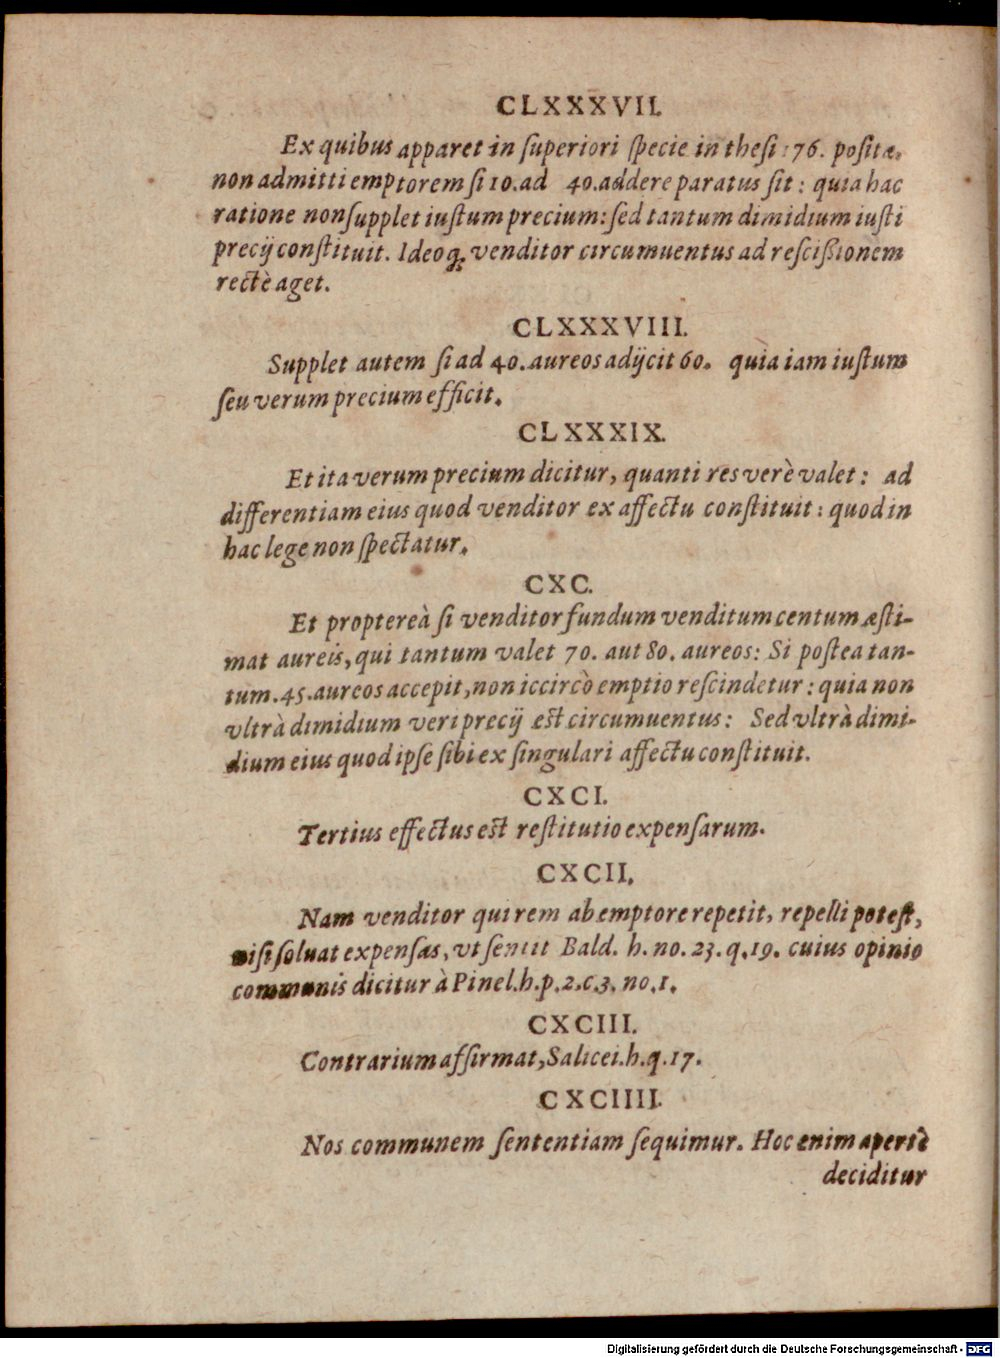 CLXXXVII.
Ex quibus apparet in ſuperiori ſpecie in theſi 76. poſita,
non admitti emptorem ſi 10. ad 40. addere paratus ſit: quia hac
ratione non ſupplet iuſtum precium: ſed tantum dimidium iuſti
precij conſtituit. Ideoq; venditor circumuentus ad reſciſsionem
rectè aget.
CLXXXVIII.
Supplet autem ſi ad 40. aureos adijcit 60. quia iam iuſtum
ſeu verum precium efficit.
CLXXXIX.
Et ita verum precium dicitur, quanti res verè valet: ad
differentiam eius quod venditor ex affectu conſtituit: quod in
hac lege non ſpectatur.
CXC.
Et proptereà ſi venditor fundum venditum centum æſti-
mat aureis, qui tantum valet 70. aut 80. aureos: Si poſtea tan-
tum. 45. aureos accepit, non iccircò emptio reſcindetur: quia non
vltrà dimidium veri precij est circumuentus: Sed vltrà dimi-
dium eius quod ipſe ſibi ex ſingulari affectu conſtituit.
CXCI.
Tertius effectus est reſtitutio expenſarum.
CXCII.
Nam venditor qui rem ab emptore repetit, repelli poteſt,
niſi ſoluat expenſas, vt ſentit Bald. h. no. 23. q. 19. cuius opinio
communis dicitur à Pinel. h. p. 2. c. 3. no. 1.
CXCIII.
Contrarium affirmat, Salicei. h. q. 17.
CXCIIII.
Nos communem ſententiam ſequimur. Hoc enim apertè
deciditur
Digitalisierung gefördert durch die Deutsche Forschungsgemeinschaft - DFG